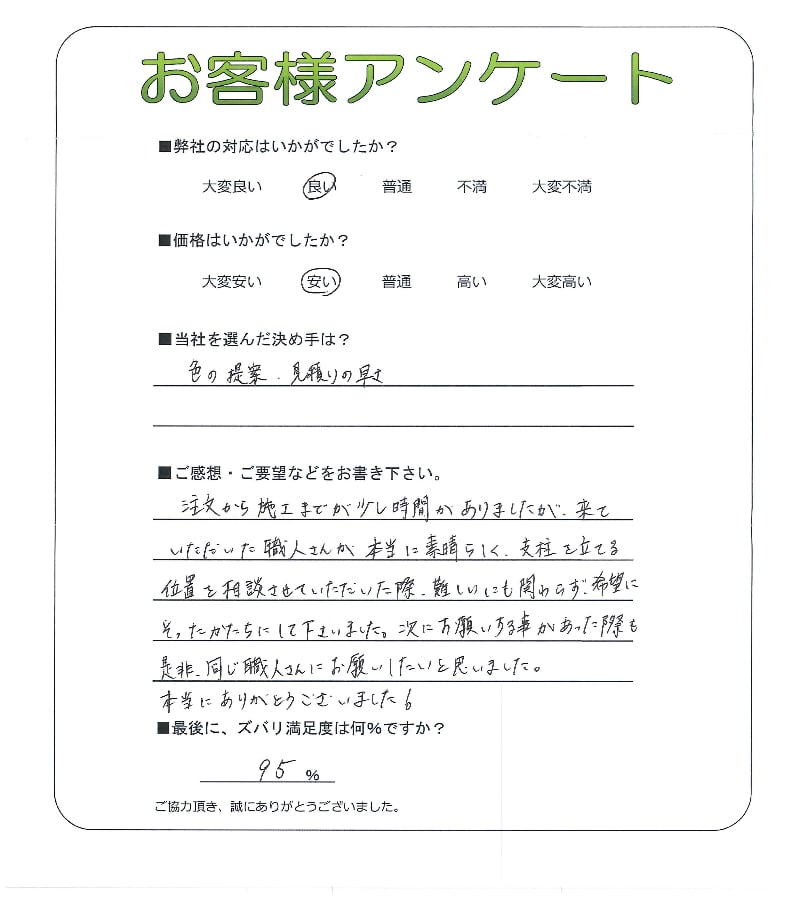 お客様アンケート
■弊社の対応はいかがでしたか？
大変良い 良い 普通 不満 大変不満
■価格はいかがでしたか？
大変安い 安い 普通 高い 大変高い
■当社を選んだ決め手は？
色の提案．見積りの早さ
■ご感想・ご要望などをお書き下さい。
注文から施工までが少し時間がありましたが、来て
いただいた職人さんが本当に素晴らしく、支柱を立てる
位置を相談させていただいた際、難しいにも関わらず、希望に
そったかたちにして下さいました。次にお願いする事があった際も
是非、同じ職人さんにお願いしたいと思いました。
本当にありがとうございました。
■最後に、ズバリ満足度は何%ですか？
95 %
ご協力頂き、誠にありがとうございました。